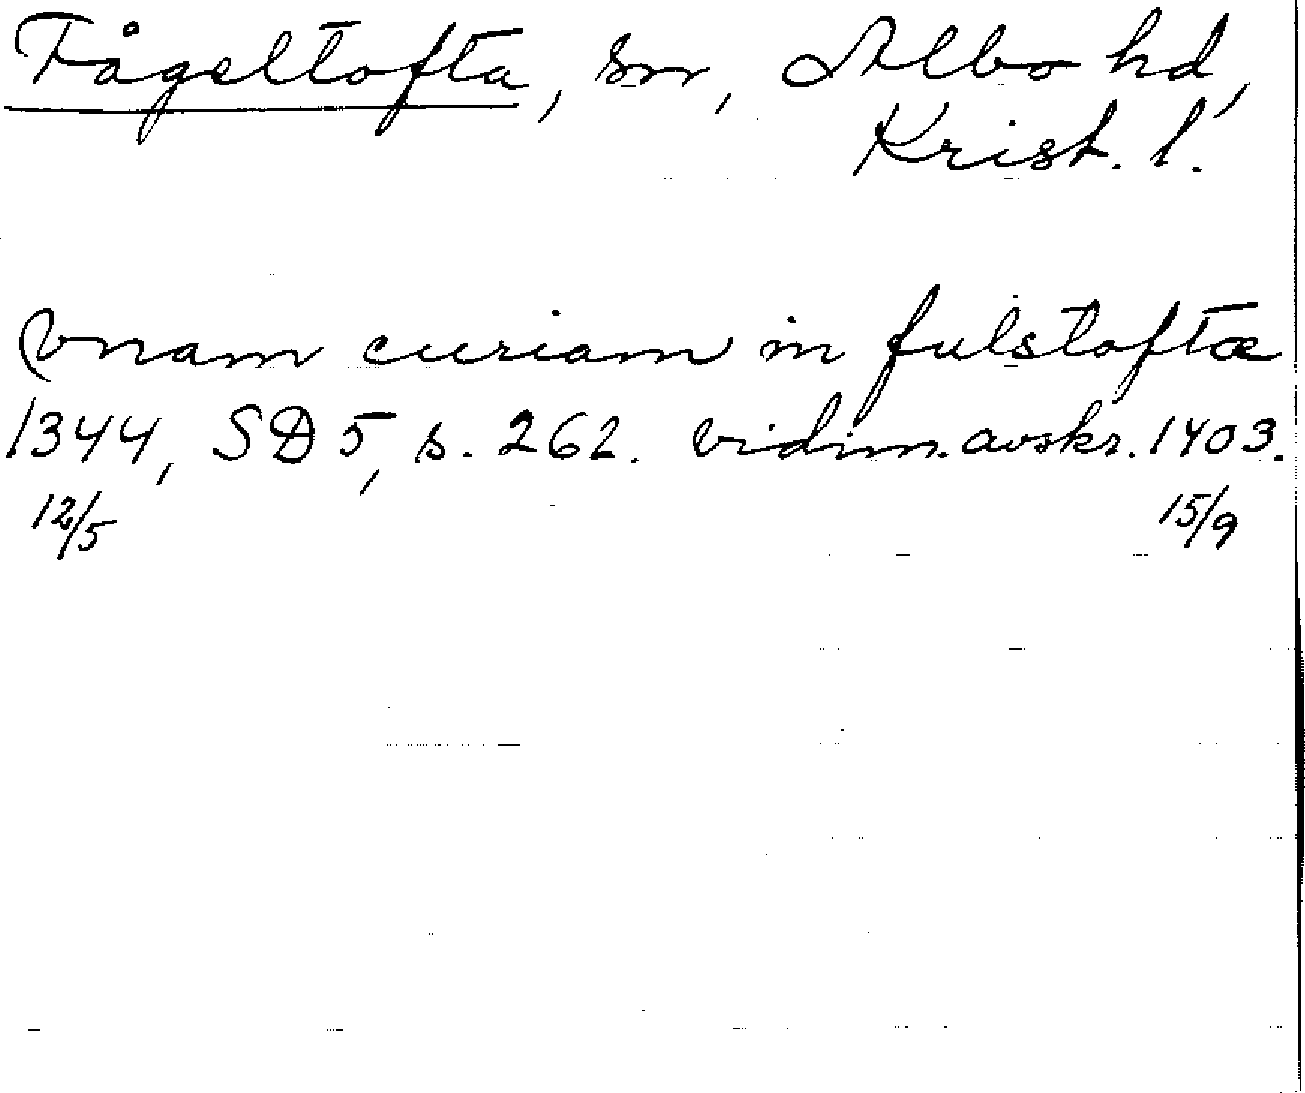 Fågeltofta, sn, Albo hd,
Krist. l.
vnam curiam in fulstoftæ
1344, SD 5, s. 262. vidim. avskr. 1403.
12/5 15/9